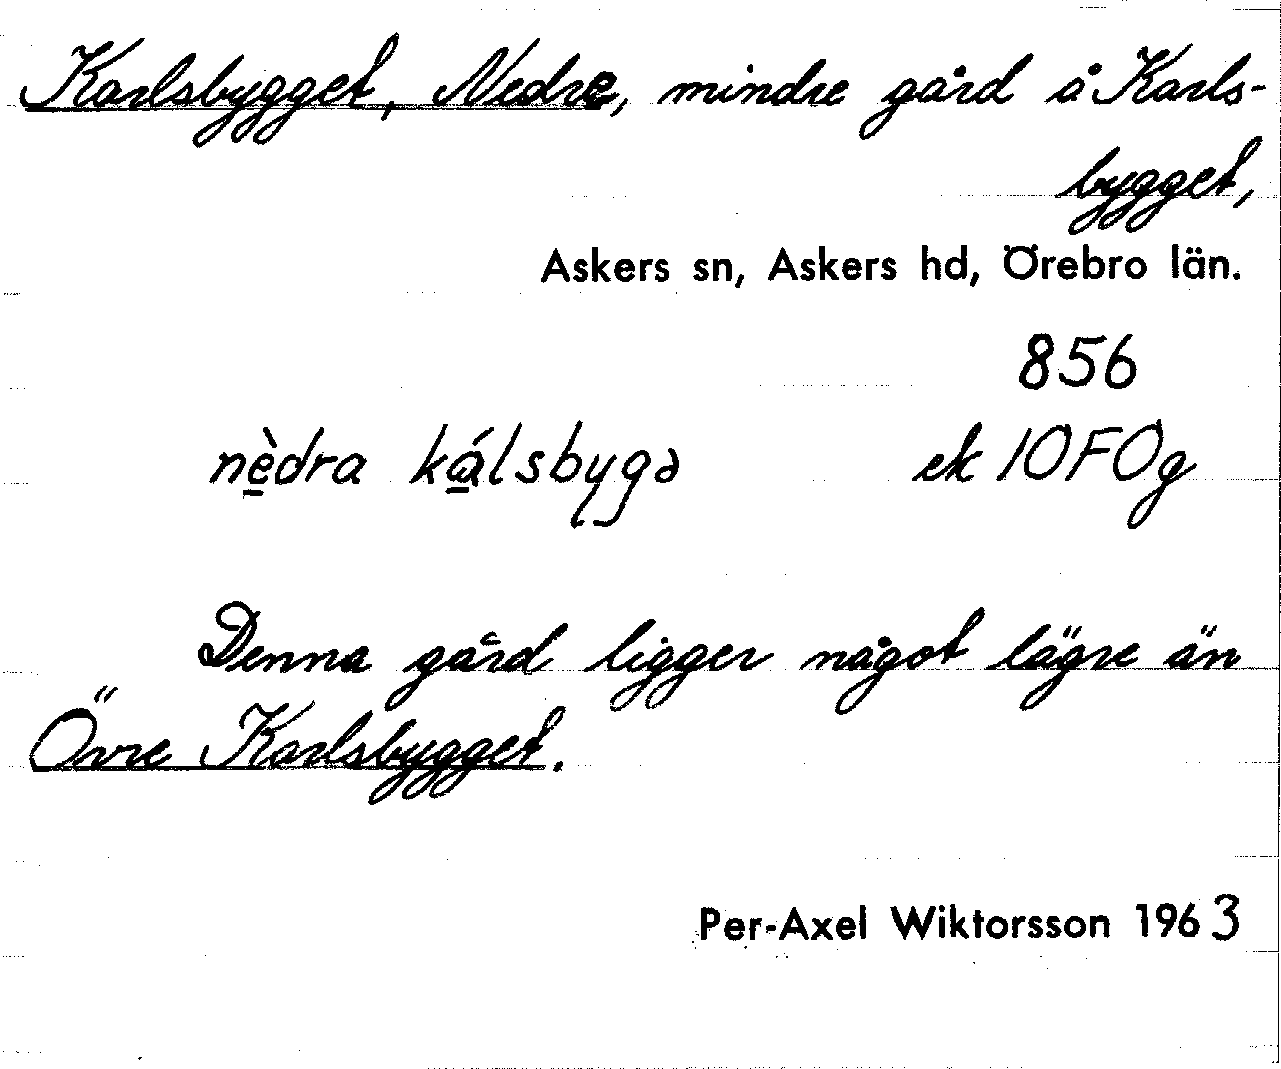 Karlsbygget, Nedre, mindre gård å Karls-
bygget,
Askers sn, Askers hd, Örebro län.
856
nè̠dra ká̠lsbygə ek 10F0g
Denna gård ligger något lägre än
Övre Karlsbygget.
Per-Axel Wiktorsson 1963